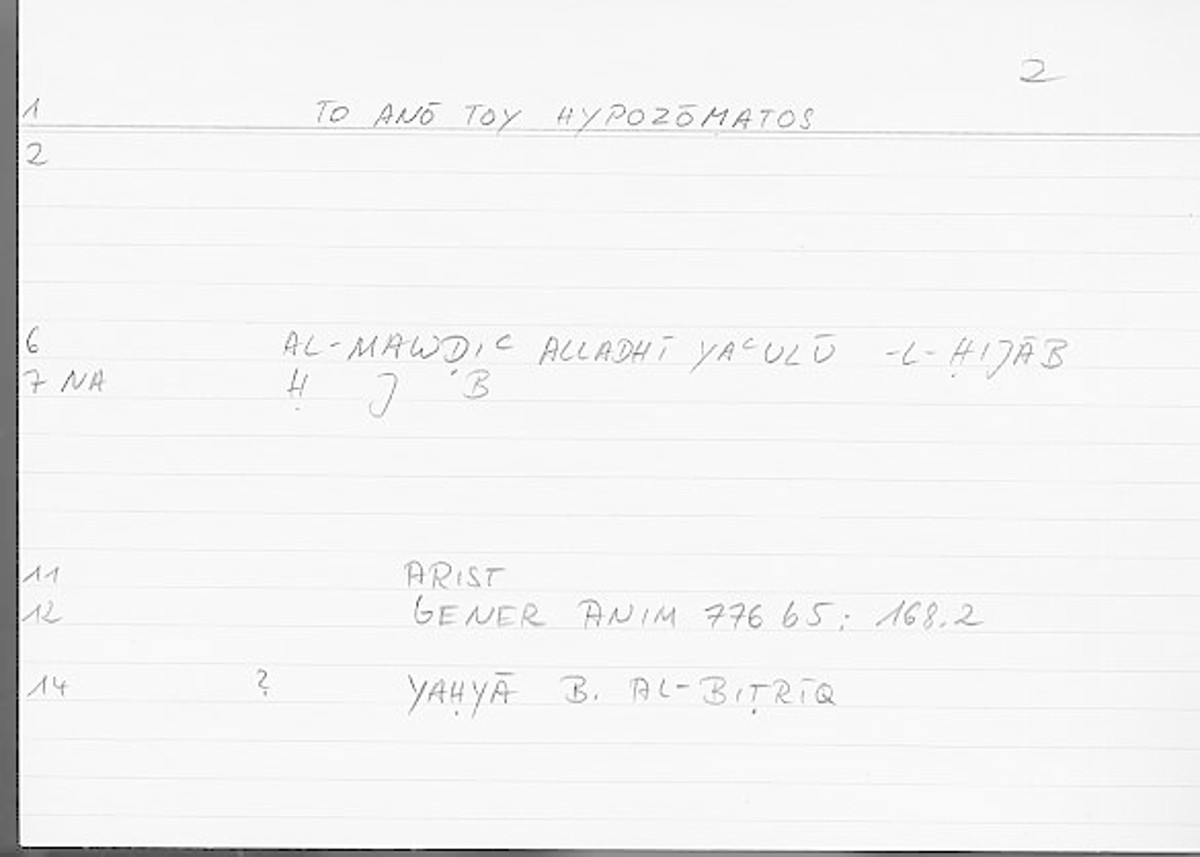 2
1 TO ANŌ TOY HYPOZŌMATOS
2
6 AL-MAWḌIʿ ALLADHĪ YAʿULŪ -L-ḤIJĀB
7 NA Ḥ J B
11 ARIST
12 GENER ANIM 776 b5; 168.2
14 ? YAḤYĀ B. AL-BIṬRĪQ